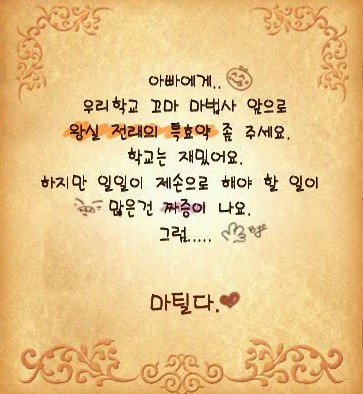 아빠에게..
우리학교 꼬마 마법사 앞으로
왕실 전래의 특효약 좀 주세요.
학교는 재밌어요.
하지만 일일이 제손으로 해야 할 일이
많은건 짜증이 나요.
그럼..... Bye
마틸다.